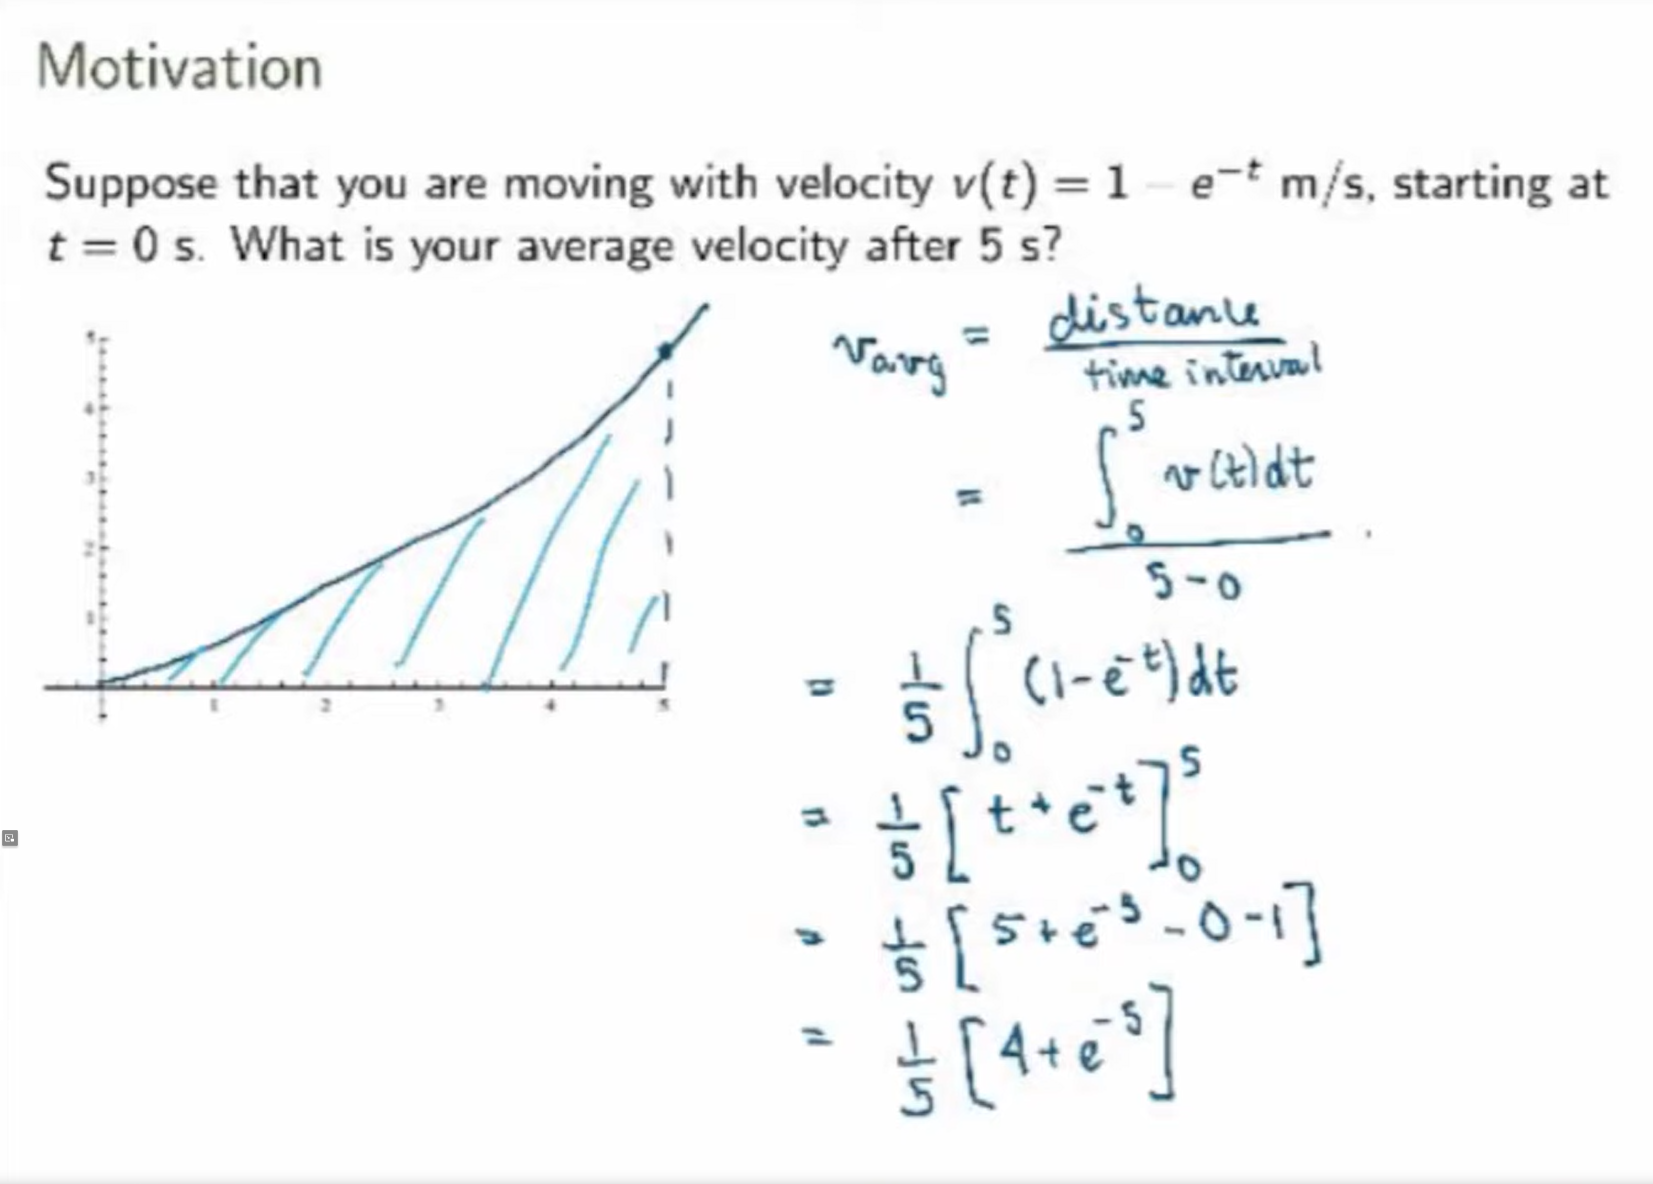 Motivation
Suppose that you are moving with velocity v(t) = 1 − e^{−t} m/s, starting at
t = 0 s. What is your average velocity after 5 s?
v_avg = distance / time interval
= ∫_0^5 v(t)dt / 5-0
= 1/5 ∫_0^5 (1-e^{-t})dt
= 1/5 [t + e^{-t}]_0^5
= 1/5 [5 + e^{-5} - 0 - 1]
= 1/5 [4 + e^{-5}]
5
4
3
2
1
1 2 3 4 5